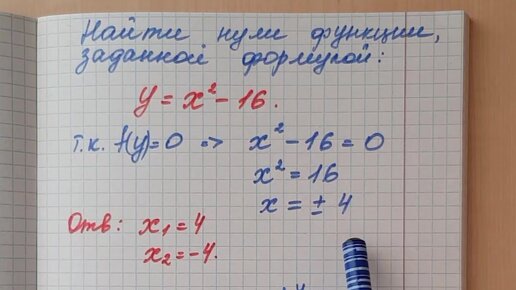 Найти нули функции,
заданной формулой:
y = x² - 16.
т.к. f(y)=0 => x² - 16 = 0
x² = 16
x = ± 4
Отв: x₁ = 4
x₂ = -4.